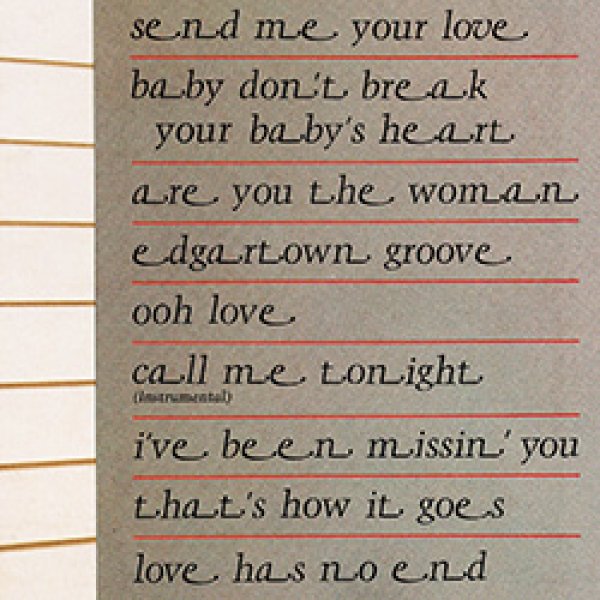 send me your love
baby don't break
your baby's heart
are you the woman
edgartown groove
ooh love
call me tonight
(Instrumental)
i've been missin' you
that's how it goes
love has no end